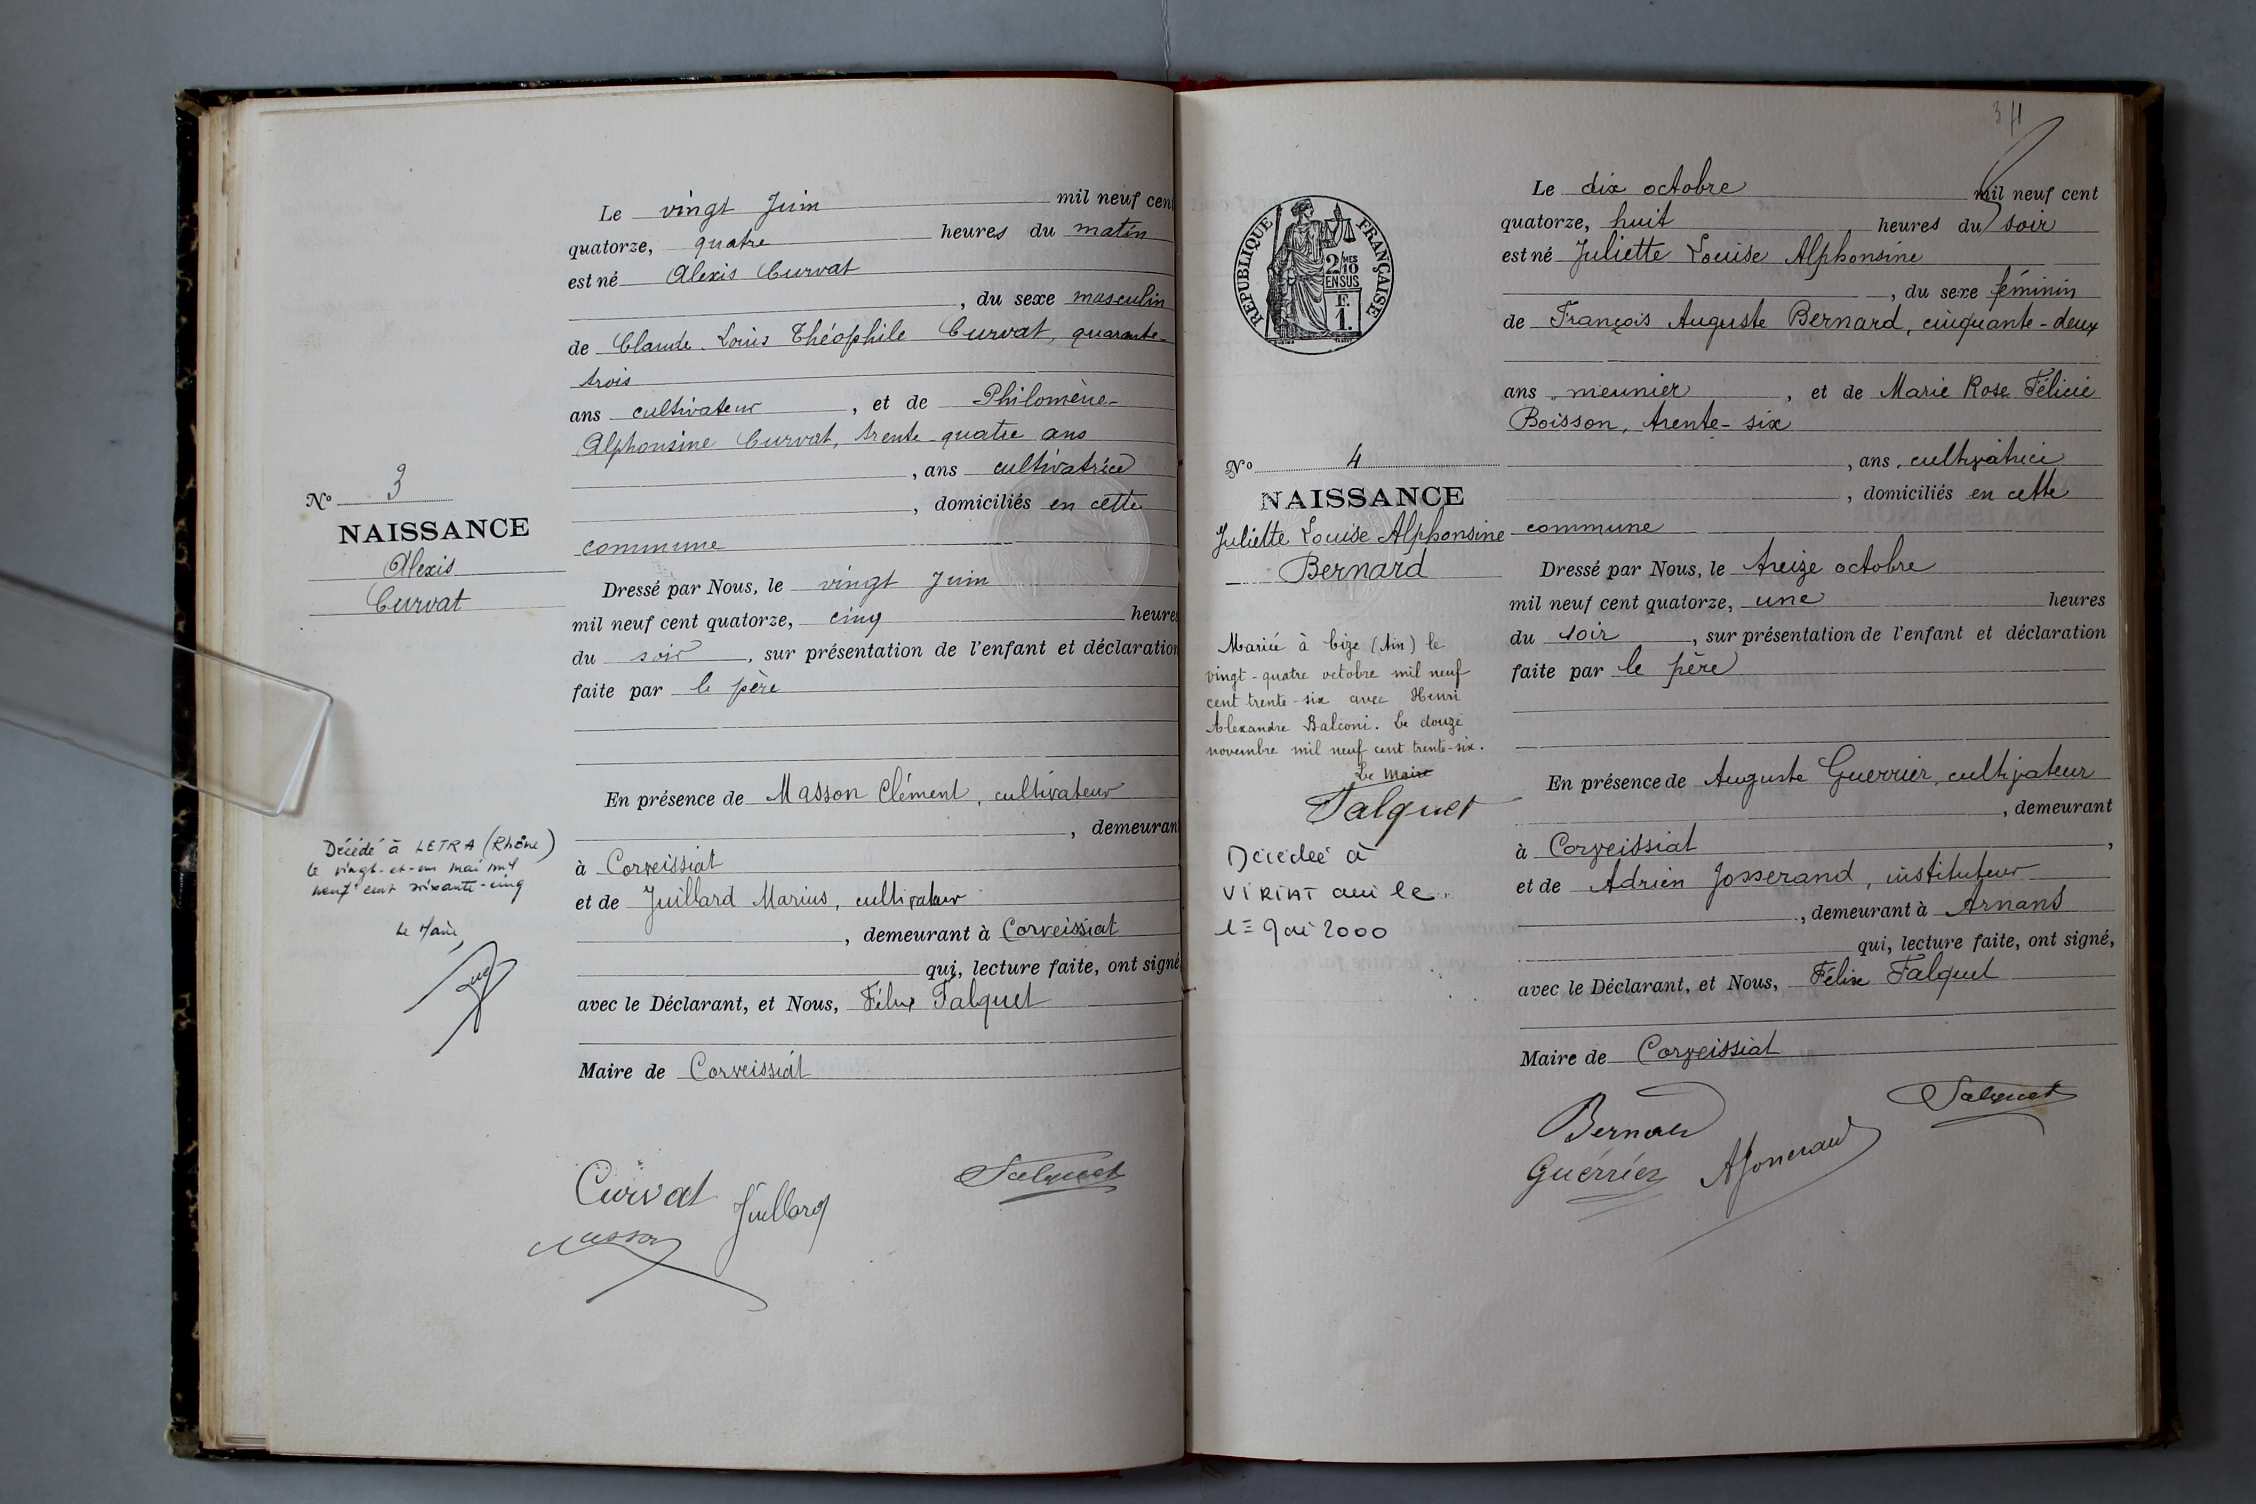 Le vingt Juin mil neuf cent
quatorze, quatre heures du matin
est né Alexis Curvat
, du sexe masculin
de Claude Louis Théophile Curvat, quarante-
trois
ans cultivateur, et de Philomène
Alphonsine Curvat, trente quatre ans
, ans cultivatrice
, domiciliés en cette
commune
Nº 3
NAISSANCE
Alexis
Curvat
Dressé par Nous, le vingt Juin
mil neuf cent quatorze, cinq heures
du soir, sur présentation de l'enfant et déclaration
faite par le père
En présence de Masson Clément, cultivateur
, demeurant
à Corveissiat
et de Juillard Marius, cultivateur
, demeurant à Corveissiat
qui, lecture faite, ont signé
avec le Déclarant, et Nous, Félix Falquet
Maire de Corveissiat
Décédé à LETRA (Rhône)
le vingt-et-un mai mil
neuf cent soixante-cinq
Le Maire,
Curvat Juillard Falquet
Masson
34
RÉPUBLIQUE FRANÇAISE
2/10 MES
EN SUS
F.
1.
Le dix octobre mil neuf cent
quatorze, huit heures du soir
est né Juliette Louise Alphonsine
, du sexe féminin
de François Auguste Bernard, cinquante-deux
ans meunier, et de Marie Rose Félicie
Boisson, trente-six
, ans, cultivatrice
, domiciliés en cette
commune
Nº 4
NAISSANCE
Juliette Louise Alphonsine
Bernard
Dressé par Nous, le treize octobre
mil neuf cent quatorze, une heures
du soir, sur présentation de l'enfant et déclaration
faite par le père
En présence de Auguste Guerrier, cultivateur
, demeurant
à Corveissiat,
et de Adrien Josserand, instituteur
, demeurant à Arnans
qui, lecture faite, ont signé,
avec le Déclarant, et Nous, Félix Falquet
Maire de Corveissiat
Mariée à Cize (Ain) le
vingt-quatre octobre mil neuf
cent trente-six avec Henri
Alexandre Balconi. Le douze
novembre mil neuf cent trente-six.
Le Maire
Falquet
Décédée à
VIRIAT le
2000
Bernard Falquet
Guérrier AJosserand